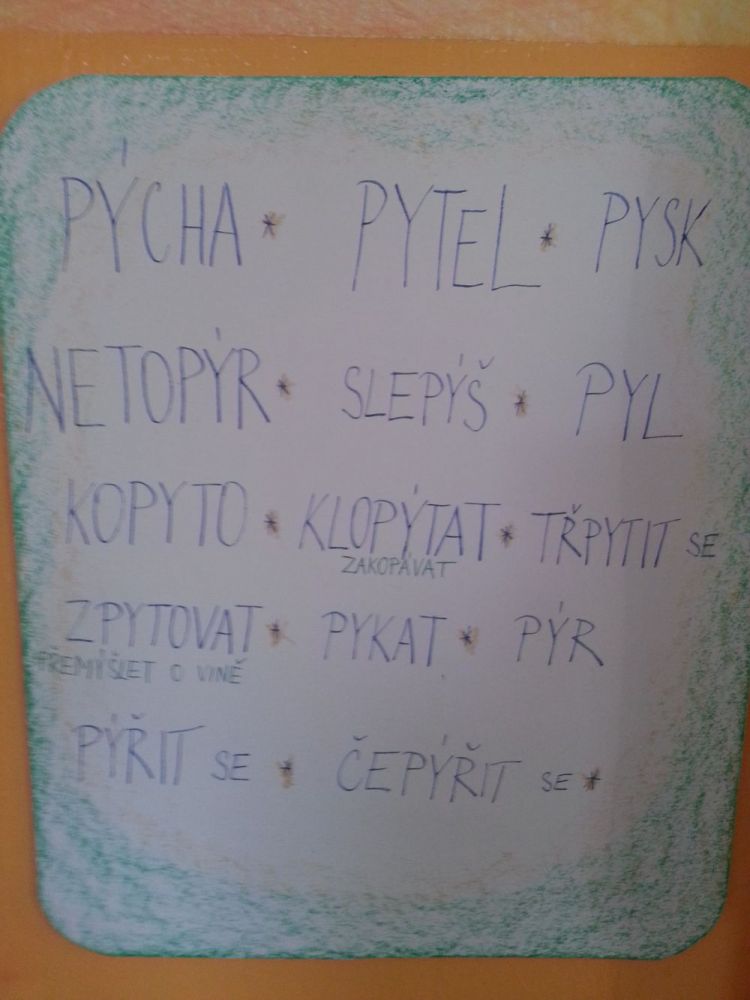 PÝCHA * PYTEL * PYSK
NETOPÝR * SLEPÝŠ * PYL
KOPYTO * KLOPÝTAT * TŘPYTIT SE
ZAKOPÁVAT
ZPYTOVAT * PYKAT * PÝR
PŘEMÝŠLET O VINĚ
PÝŘIT SE * ČEPÝŘIT SE *